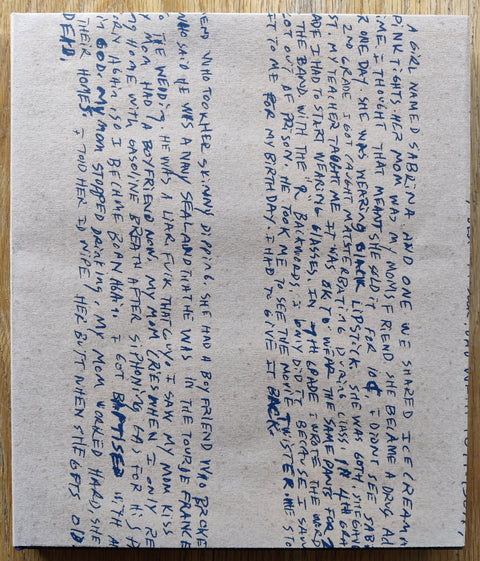 A GIRL NAMED SABRINA AND ONE WE SHARED ICE CREAM
PINK TIGHTS. HER MOM WAS MY MOMS FRIEND SHE BECAME A DRUG AD
ME. I THOUGHT THAT MEANT SHE SOLD IT FOR 10¢ I DIDNT SEE SAB
R ONE DAY. SHE WAS WEARING BLACK LIPSTICK. SHE WAS GOTH. SHE
2ND GRADE I GOT CAUGHT MASTERBATING DURING CLASS IN 4TH GRA
ST. MY TEACHER TAUGHT ME IT WAS OK TO WEAR THE SAME PANTS FOR 2
ADE I HAD TO START WEARING GLASSES. IN 7TH GRADE I WROTE THE WORD
THE BAND, WITH THE "R" BACKWORDS. I ONLY DID IT BECAUSE I SAW
GOT OUT OF PRISON. HE TOOK ME TO SEE THE MOVIE TWISTER. HE STO
FT TO ME FOR MY BIRTHDAY. I HAD TO GIVE IT BACK.
IEND WHO TOOK HER SKINNY DIPPING. SHE HAD A BOYFRIEND WHO BROKE
WHO SAID HE WAS A NAVY SEAL AND THAT HE WAS IN THE TOUR DE FRANCE
O THE WEDDING. HE WAS A LIAR. FUCK THAT GUY. I SAW MY MOM KISS
Y MOM HAD A BOYFRIEND NOW. MY MOM CRIED WHEN I ONLY RE
MY HOME WITH GASOLINE BREATH AFTER SIPHONING GAS FOR HIS
RN AGAIN SO I BECAME BORN AGAIN. I GOT BAPTISED WITH
M GOD. MY MOM STOPPED DRINKING. MY MOM WORKED HARD, SHE
THEIR HOMES. I TOLD HER ID WIPE HER BUTT WHEN SHE GETS OLD.
DEAD.